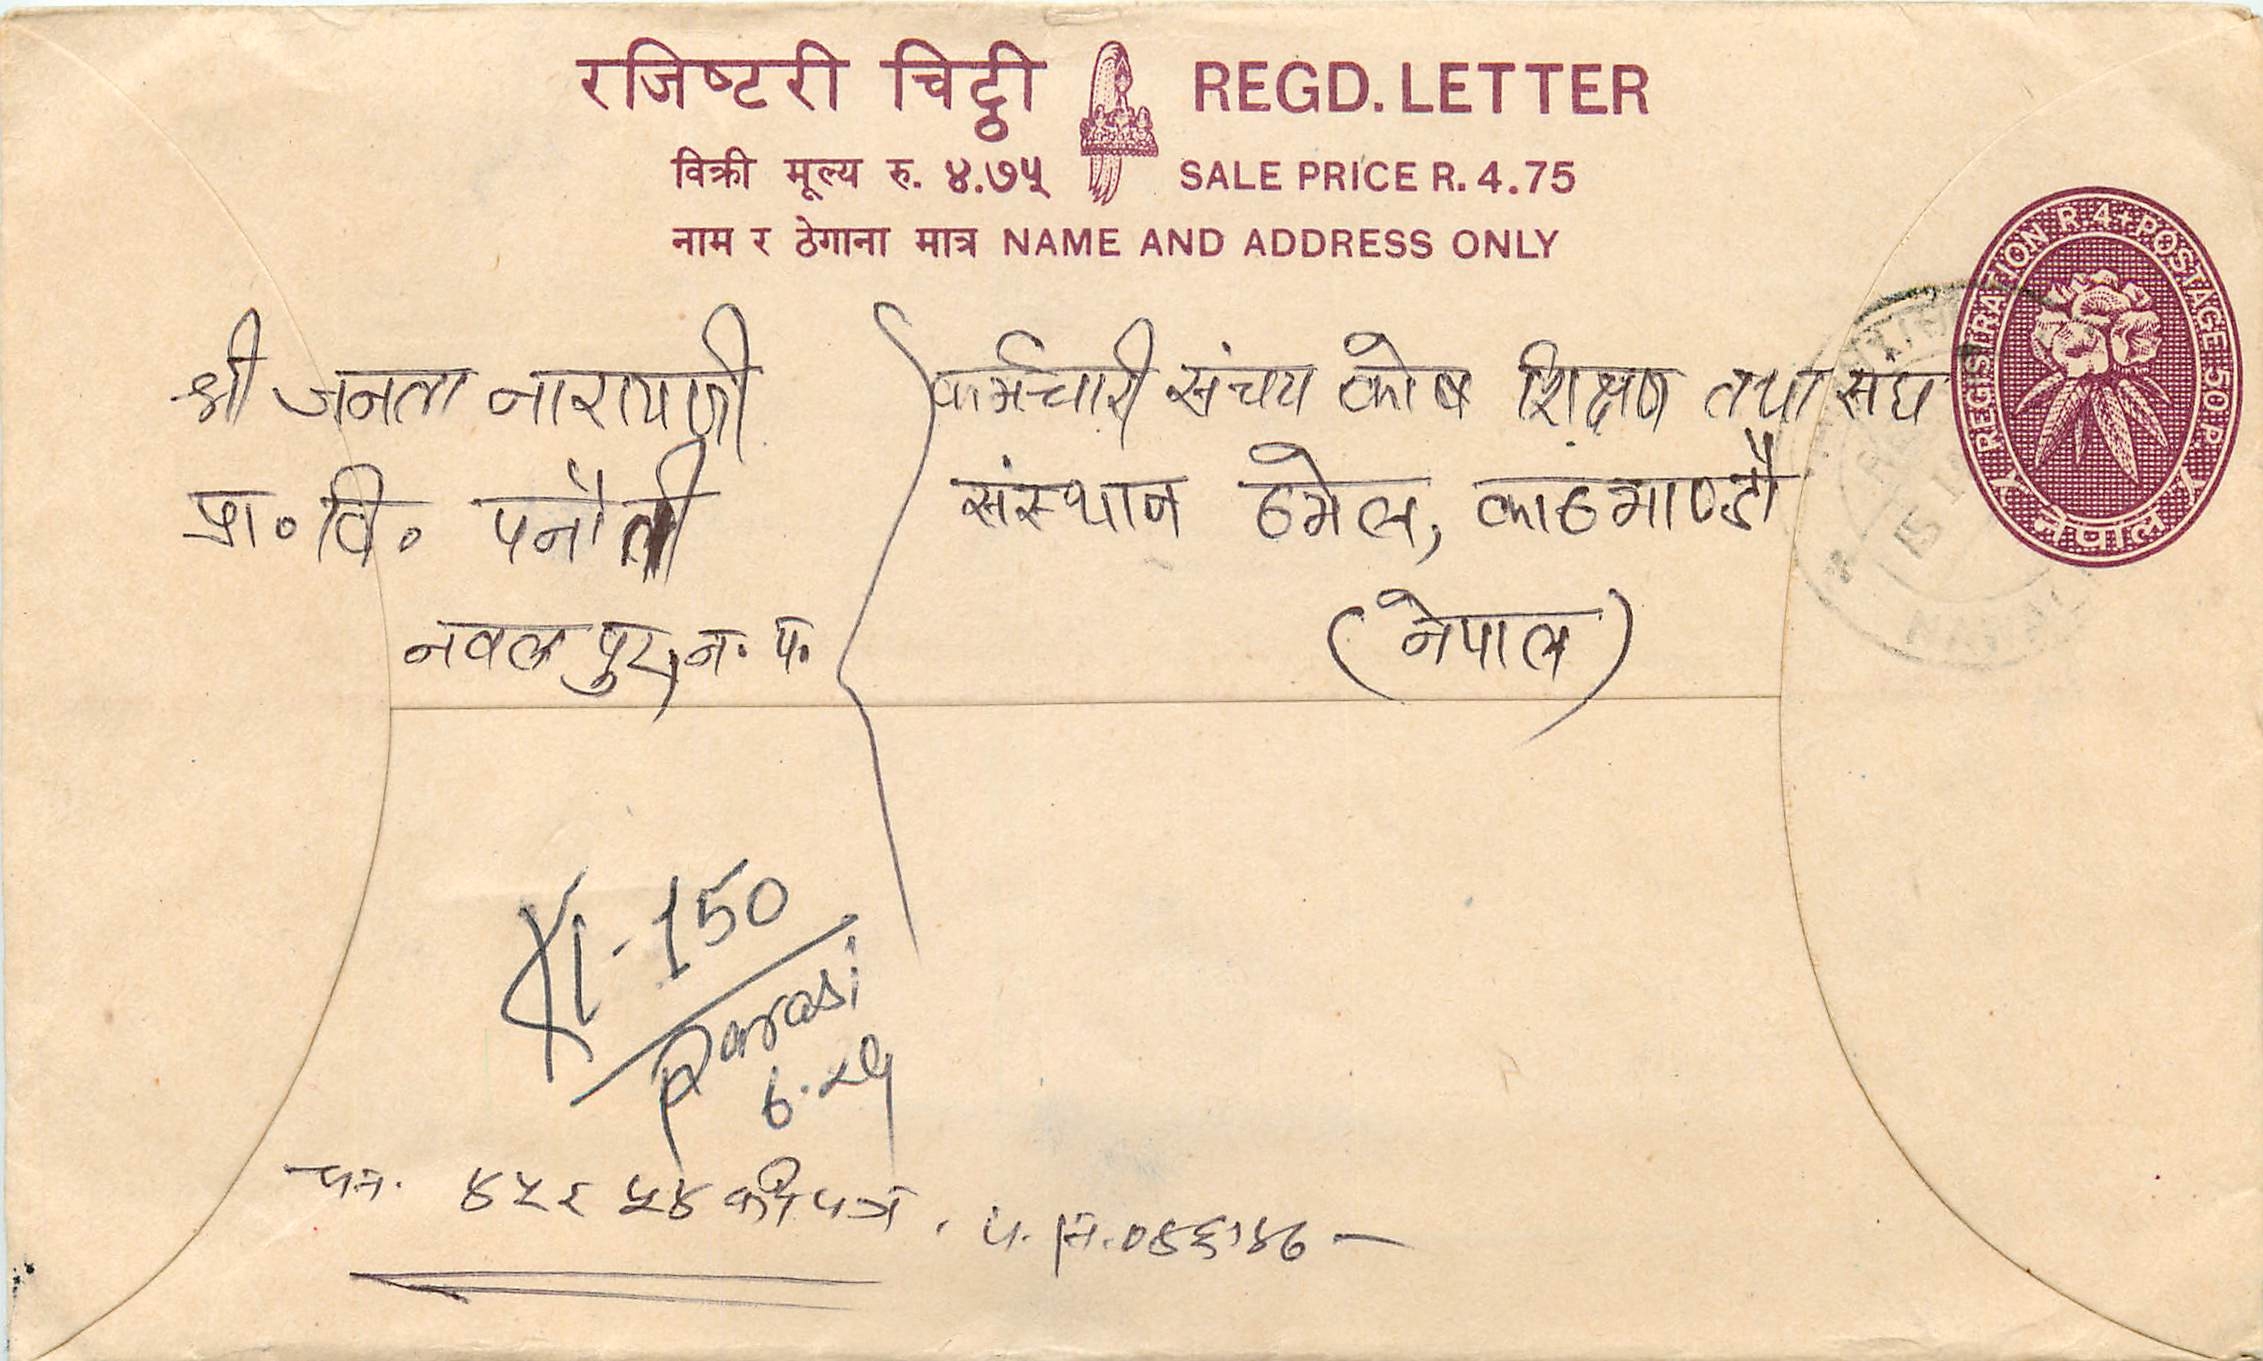 रजिष्टरी चिठ्ठी REGD. LETTER
विक्री मूल्य रु. ४.७५ SALE PRICE R. 4.75
नाम र ठेगाना मात्र NAME AND ADDRESS ONLY
REGISTRATION R.4+POSTAGE 50 P.
नेपाल
श्री जनता नारायणी
प्रा॰ वि॰ पनौती
नवलपुर, न. प.
कर्मचारी संचय कोष शिक्षण तथा संघ
संस्थान ठमेल, काठमाण्डौ
(नेपाल)
150
parasi